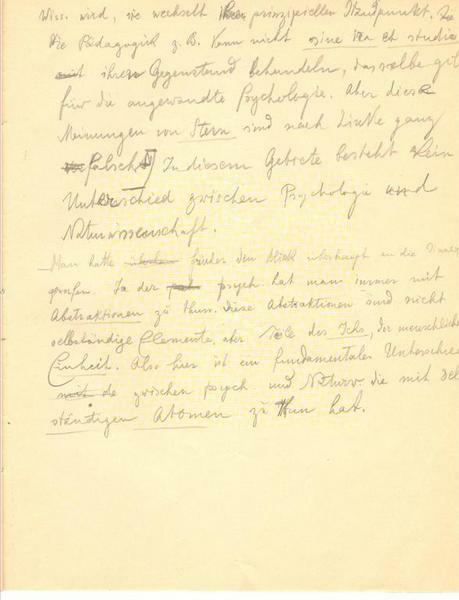 Wiss. wird, sie wechselt ihren prinzipiellen Standpunkt.
die Pädagogik z. B. kann nicht sine ira et studio
mit ihren Gegenstand behandeln, dasselbe gilt
für die angewandte Psychologie. Aber diese
Meinungen von Stern sind nach Linke ganz
falsch. In diesem Gebiete besteht kein
Unterschied zwischen Psychologie und
Naturwissenschaft.
Man hatte früher den Blick überhaupt an die Dinge
In der psych. hat man immer mit
Abstraktionen zu thun. Diese Abstraktionen sind nicht
selbständige Elemente, aber Teile des Ichs, der menschlichen
Einheit. Also hier ist ein fundamentaler Unterschied
mit de zwischen psych. und Naturw. die mit
ständigen Atomen zu thun hat.